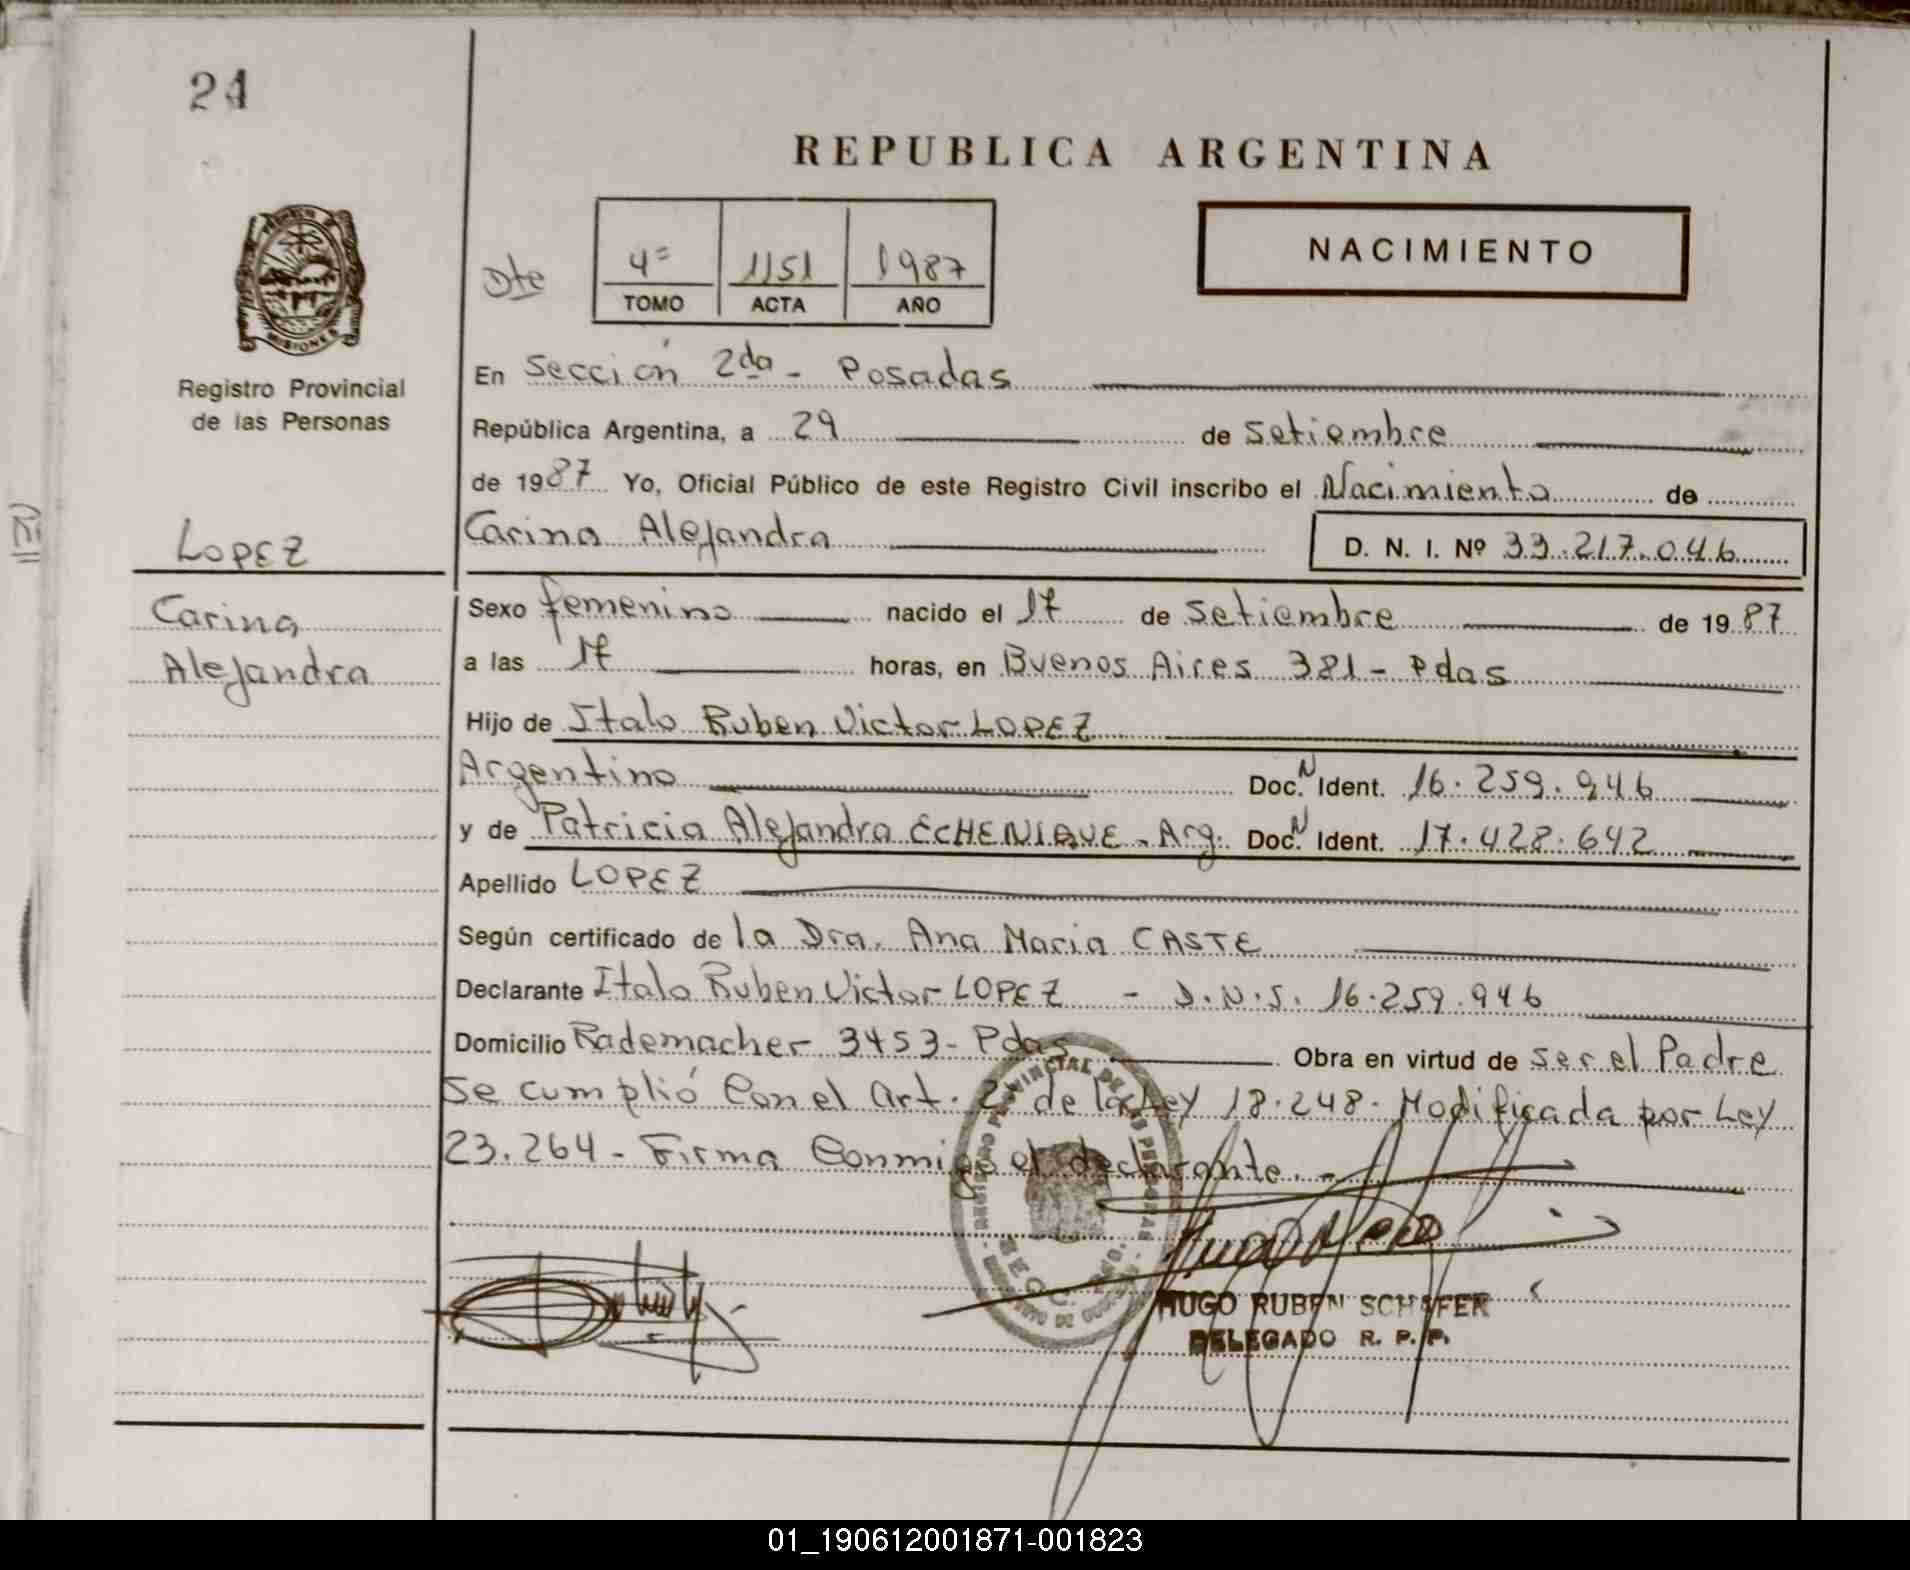 24
REPUBLICA ARGENTINA
NACIMIENTO
Dte
4ª 1151 1987
TOMO ACTA AÑO
MISIONES
Registro Provincial
de las Personas
En Sección 2da - Posadas
República Argentina, a 29 de Setiembre
de 1987 Yo, Oficial Público de este Registro Civil inscribo el Nacimiento de
LOPEZ
Carina Alejandra D. N. I. Nº 33.217.046
Carina
Alejandra
Sexo femenino nacido el 17 de Setiembre de 1987
a las 17 horas, en Buenos Aires 381 - Pdas
Hijo de Italo Ruben Victor LOPEZ
Argentino Doc. N Ident. 16.259.946
y de Patricia Alejandra ECHENIQUE - Arg. Doc. N Ident. 17.428.642
Apellido LOPEZ
Según certificado de la Dra. Ana Maria CASTE
Declarante Italo Ruben Victor LOPEZ - D.N.I. 16.259.946
Domicilio Rademacher 3453 - Pdas Obra en virtud de ser el Padre
Se cumplió Con el art. 2 de la Ley 18.248. Modificada por Ley
23.264 - Firma Conmigo el declarante. -
HUGO RUBEN SCHAFER
DELEGADO R. P. P.
01_190612001871-001823